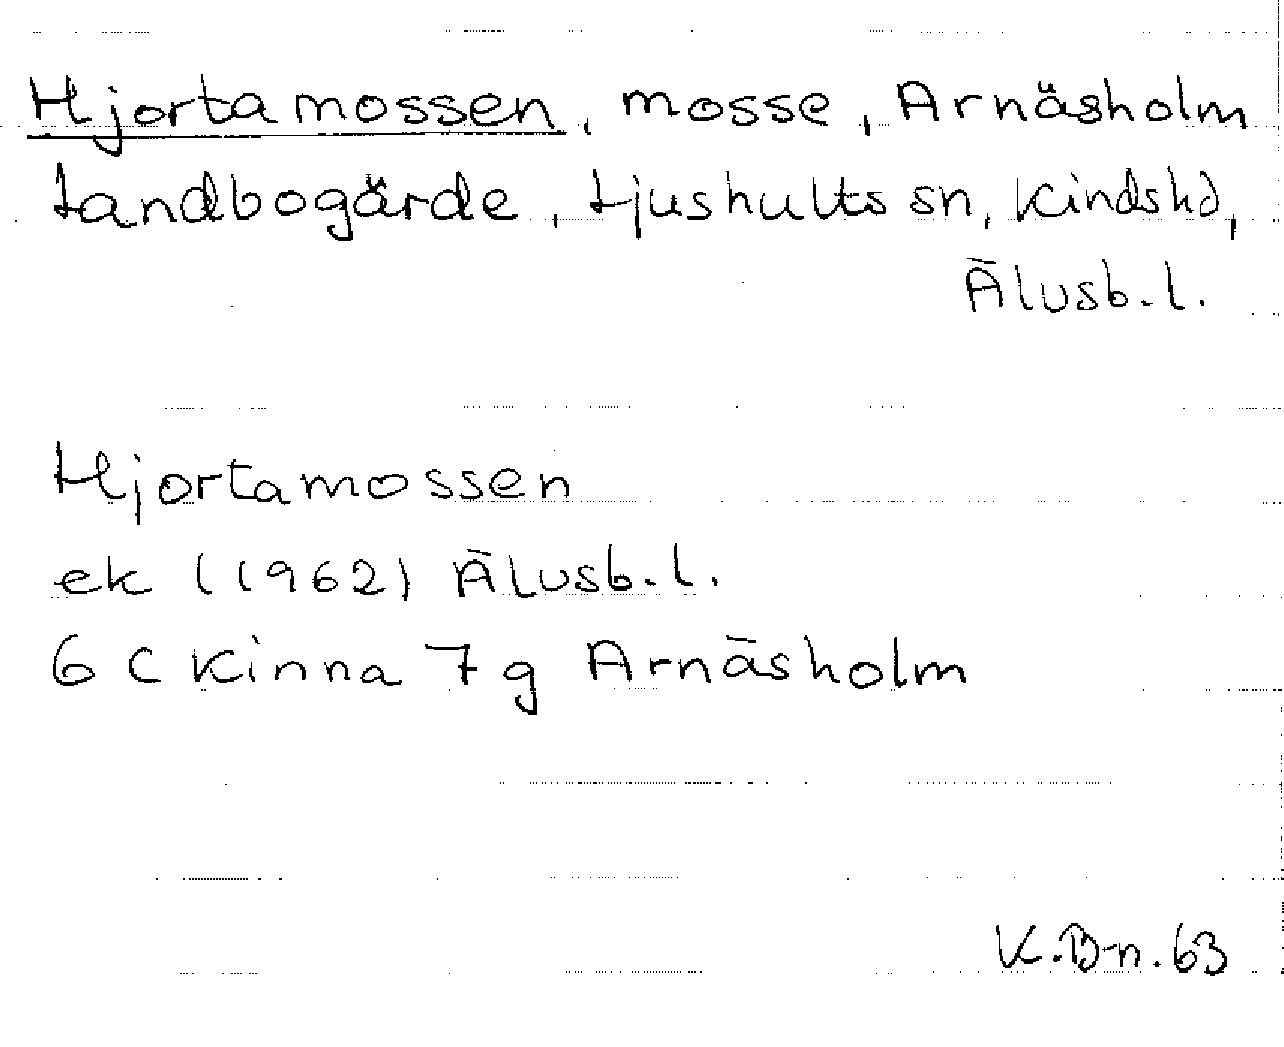 Hjortamossen, mosse, Arnäsholm
Landbogärde, Ljushults sn, Kinds hd,
Älvsb.l.
Hjortamossen
ek (1962) Älvsb.l.
6 C Kinna 7 g Arnäsholm
K.B-n.63